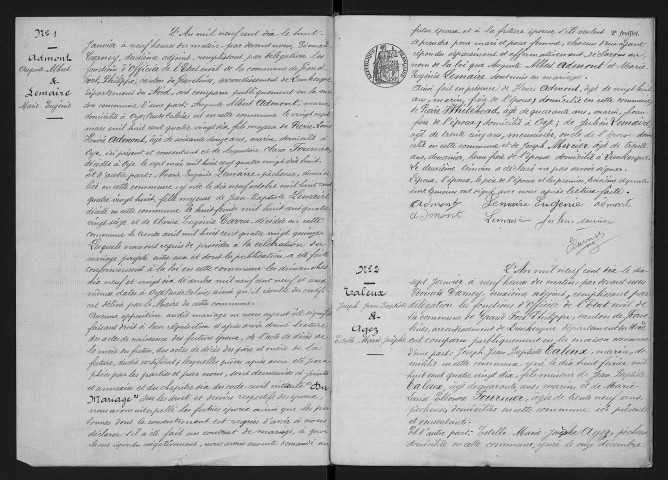 N° 1
Admont
Auguste Albert
&
Lemaire
Marie Eugénie
L'An mil neuf cent dix le huit
Janvier à neuf heures du matin, par devant nous Edouard
Carney, deuxième adjoint, remplissant par délégation les
fonctions d'Officier de l'Etat civil de la commune de Grand
Fort Philippe, canton de Gravelines, arrondissement de Dunkerque
département du Nord, ont comparu publiquement en la mai
son commune d'une part: Auguste Albert Admont, marin,
domicilié à Oye, Pas de Calais, né en cette commune le vingt sept
mai mil huit cent quatre vingt dix, fils majeur de Pierre Louis
Henri Admont, âgé de soixante douze ans, marin, domicilié à
Oye, ici présent et consentant et de Augustine Clara Fournier,
décédée à Oye le sept mai mil huit cent quatre vingt dix huit.
Et d'autre part: Marie Eugénie Lemaire, pêcheuse, domici
liée en cette commune, y née le dix neuf octobre mil huit cent
quatre vingt huit, fille majeure de Jean Baptiste Lemaire
décédé en cette commune le huit février mil huit cent quatre
vingt seize et de Louise Eugénie Carru décédée en cette
commune le trente avril mil huit cent quatre vingt quinze.
Lesquels nous ont requis de procéder à la célébration du
mariage projeté entre eux et dont la publication a été faite
conformément à la loi en cette commune les dimanches
dix neuf et vingt six décembre mil neuf cent neuf et aux
mêmes dates à Oye, Pas de Calais, ainsi qu'il résulte du certificat
délivré par le Maire de cette commune.
Aucune opposition audit mariage ne nous ayant été signifiée
faisant droit à leur réquisition et après avoir donné lecture
des actes de naissance des futurs époux, de l'acte de décès de
la mère du futur, des actes de décès des père et mère de la
future, dudit certificat, lesquelles pièces après avoir été para
phées par les parties et par nous, sont demeurées ci-jointes
et annexées et du chapitre six du code civil intitulé "Du
Mariage" sur les droits et devoirs respectifs des époux,
nous avons interpellé les futurs époux ainsi que les per
sonnes dont le consentement est requis d'avoir à nous
déclarer s'il a été fait un contrat de mariage à quoi
ils ont répondu négativement, nous avons ensuite demandé au
2e feuillet
futur époux et à la future épouse s'ils veulent
se prendre pour mari et pour femme, chacun d'eux ayant
répondu séparément et affirmativement, déclarons au
nom de la loi que Auguste Albert Admont et Marie
Eugénie Lemaire sont unis en mariage.
Ainsi fait en présence de Henri Admont, âgé de vingt huit
ans, marin, frère de l'époux, domicilié en cette commune,
de Pierre, âgé de quarante ans, marin, beau
frère de l'époux, domicilié à Oye, de Julien Lemaire,
âgé de trente cinq ans, menuisier, oncle de l'épouse, domi
cilié en cette commune et de Joseph Mercier, âgé de trente
ans, douanier, beau frère de l'épouse, domicilié à Dunkerque.
Le deuxième témoin a déclaré ne pas savoir signer.
L'époux, l'épouse, le père de l'époux et les premier, troisième et quatrième
témoins ont signé avec nous après lecture faite.
admont Lemaire Eugénie admont
admont Lemaire Julien
Carney
N° 2
Taleux
Joseph Jean Baptiste
&
Agez
Estelle Marie Josèphe
L'An mil neuf cent dix le dix
sept Janvier à neuf heures du matin, par devant nous
Edouard Carney, deuxième adjoint, remplissant par
délégation les fonctions d'Officier de l'Etat civil de
la commune de Grand Fort Philippe, canton de Grave
lines, arrondissement de Dunkerque, département du Nord,
ont comparu publiquement en la maison commune
d'une part: Joseph Jean Baptiste Taleux, marin, do
micilié en cette commune, y né le dix huit février mil
huit cent quatre vingt dix, fils mineur de Jean Baptiste
Taleux, âgé de quarante ans, marin, et de Marie
Louise Eléonore Fournier, âgée de trente neuf ans,
pêcheuse, domiciliés en cette commune, ici présents
et consentants.
Et d'autre part: Estelle Marie Josèphe Agez, pêcheuse,
domiciliée en cette commune, y née le onze décembre